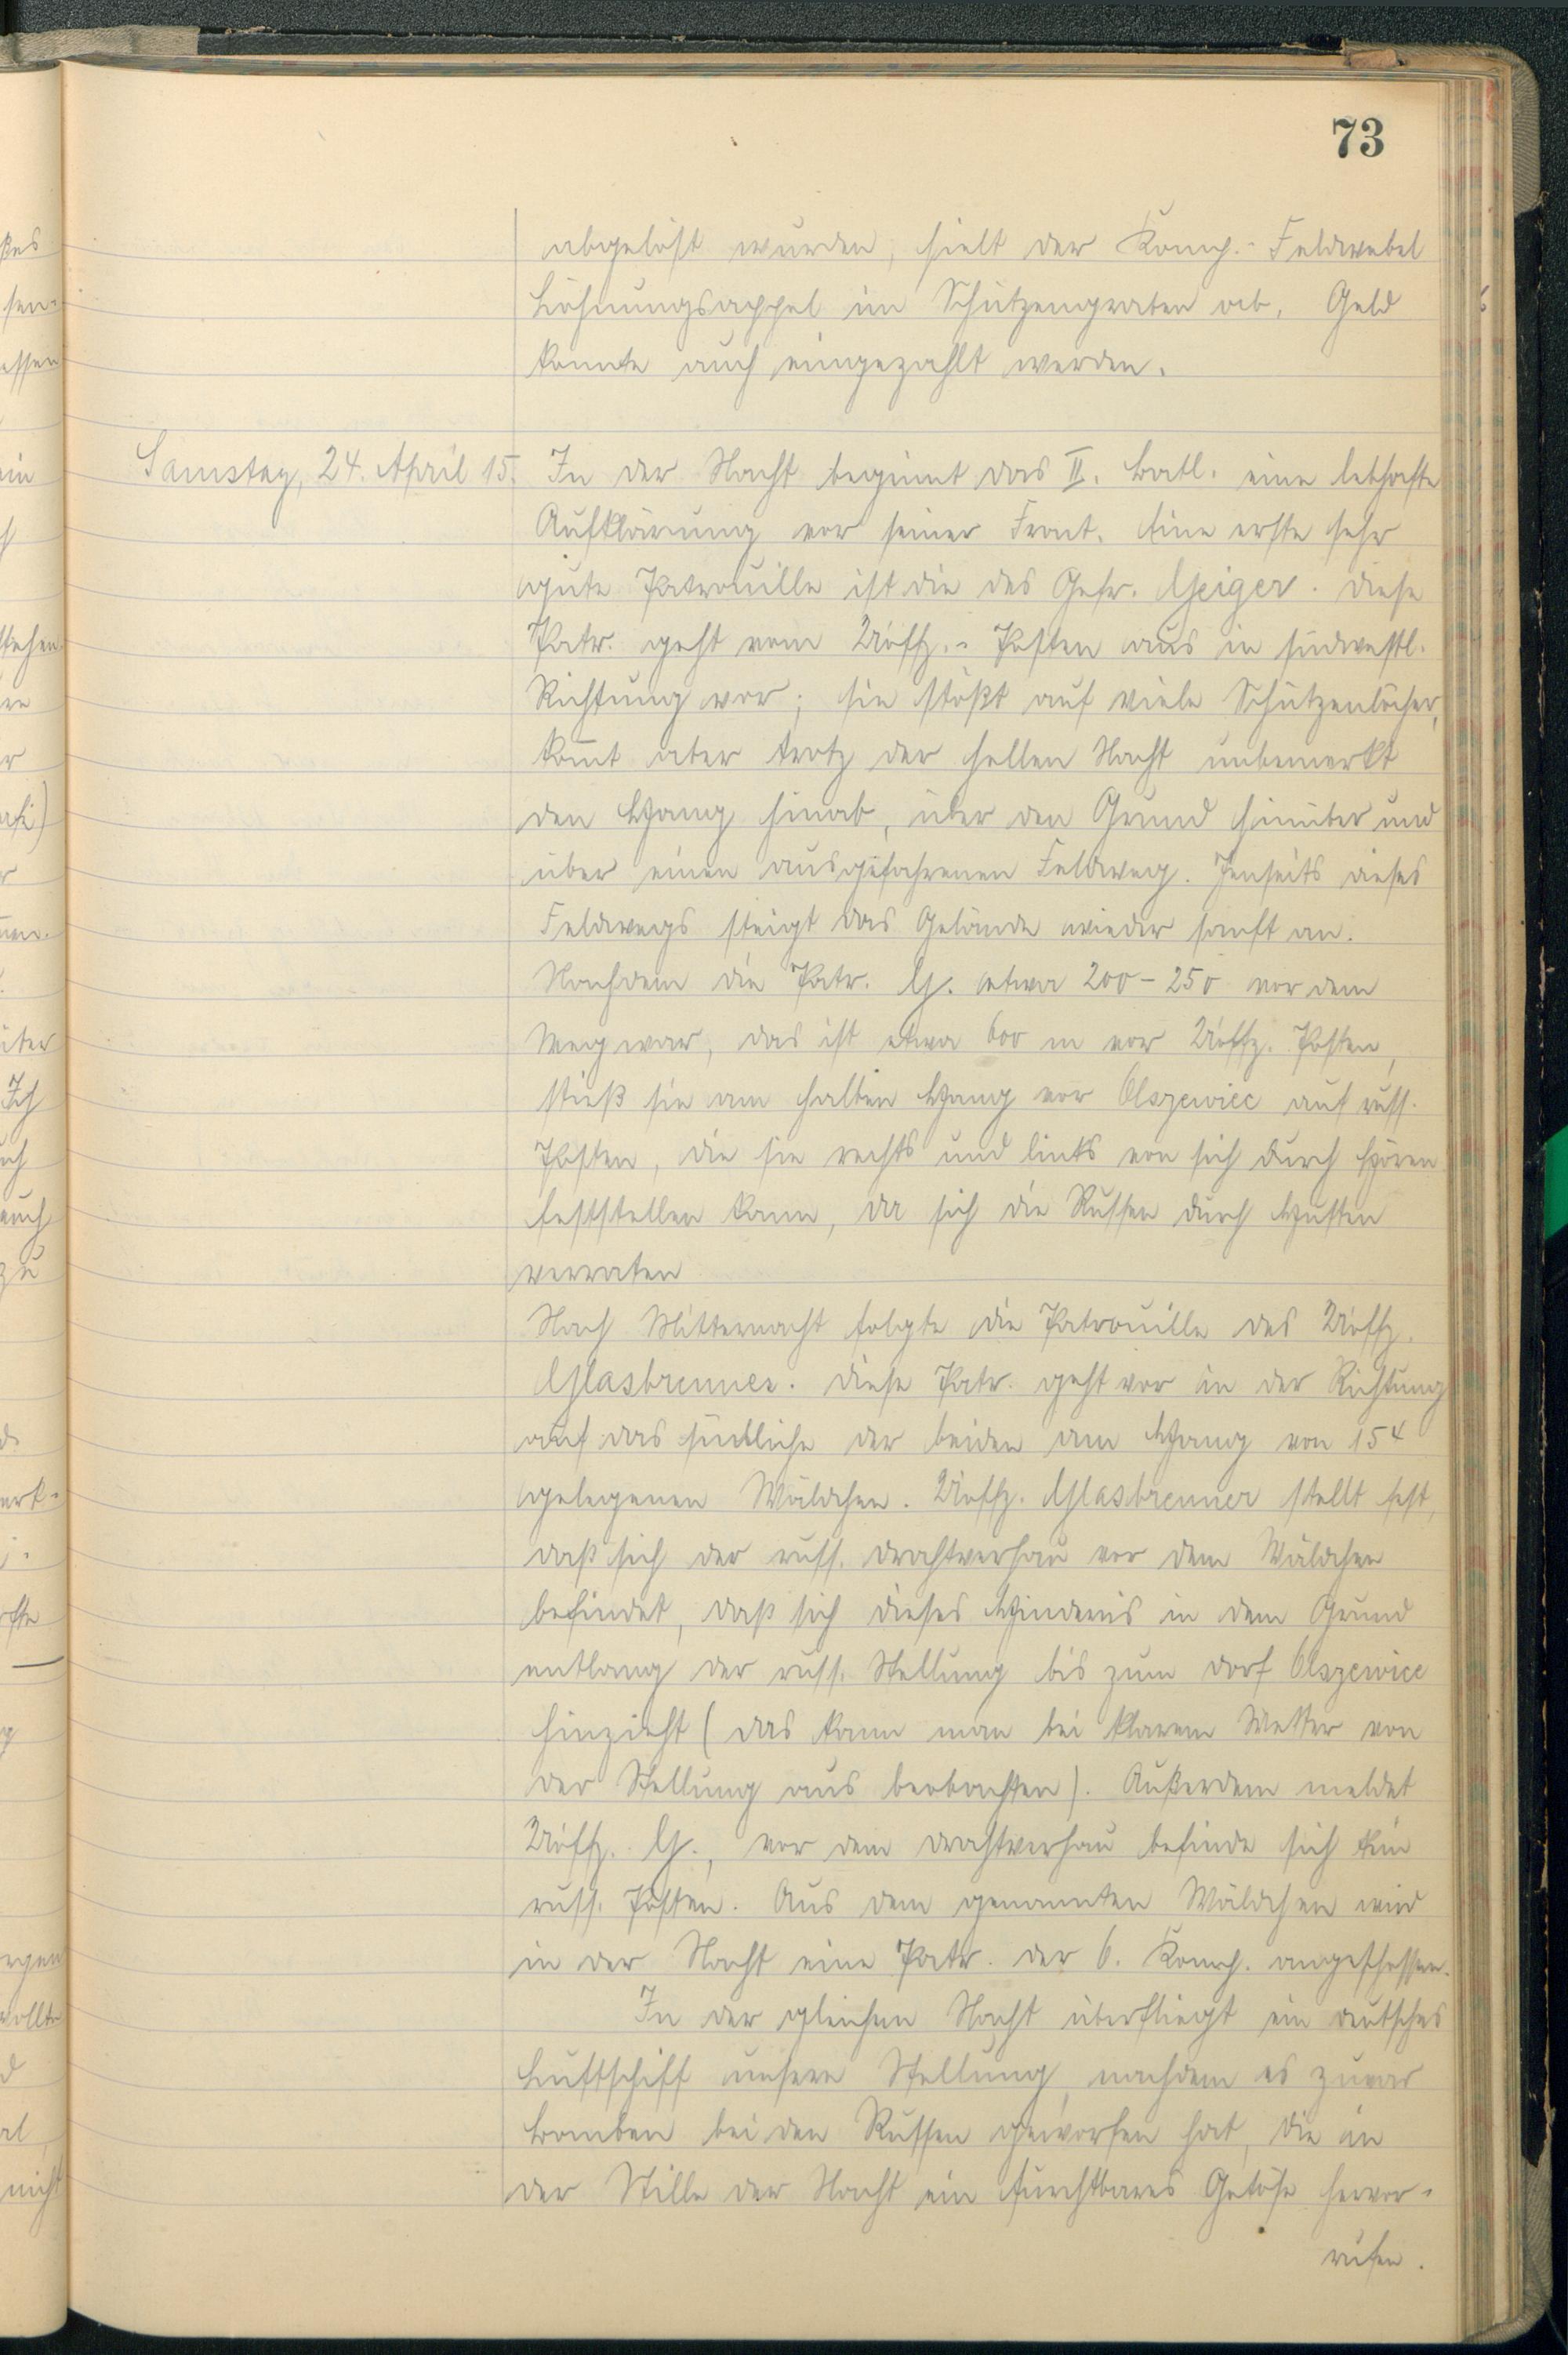 73
abgelöst wurden, hielt der Komp.-Feldwebel
Löhnungsappel im Schützengraben ab. Geld
konnte auch eingezahlt werden.
Samstag, 24. April 15. In der Nacht beginnt das II. Batl. eine lebhafte
Aufklärung vor seiner Front. Eine erste sehr
gute Patrouille ist die des Gefr. Geiger. Diese
Patr. geht vom Uoffz.-Posten aus in südwestl.
Richtung vor; sie stößt auf viele Schützenlöcher,
kom̅t aber trotz der hellen Nacht unbemerkt
den Hang hinab, über den Grund hinüber und
über einen ausgefahrenen Feldweg. Jenseits dieses
Feldwegs steigt das Gelände wieder sanft an.
Nachdem die Patr. G. etwa 200-250 vor dem
Weg war, das ist etwa 600 m vor Uoffz. Posten,
stieß sie am halben Hang vor Olszewiec auf russ.
Posten, die sie rechts und links von sich durch Hören
feststellen kann, da sich die Russen durch Husten
verraten
Nach Mitternacht folgte die Patrouille des Uoffz.
Glasbrenner. Diese Patr. geht vor in der Richtung
auf das südliche der beiden am Hang von 154
gelegenen Wäldchen. Uoffz. Glasbrenner stellt fest,
daß sich der russ. Drachtverhau vor dem Wäldchen
befindet, daß sich dieses Hindernis in dem Grund
entlang der russ. Stellung bis zum Dorf Olszewiec
hinzieht (das kann man bei klarem Wetter von
der Stellung aus beobachten). Außerdem meldet
Uoffz. G., vor dem Drachtverhau befinde sich kein
russ. Posten. Aus dem genannten Wäldchen wird
in der Nacht eine Patr. der 6. Komp. angeschossen.
In der gleichen Nacht überfliegt ein deutsches
Luftschiff unsere Stellung, nachdem es zuvor
Bomben bei den Russen geworfen hat, die in
der Stille der Nacht ein furchtbares Getöse hervor-
rufen.